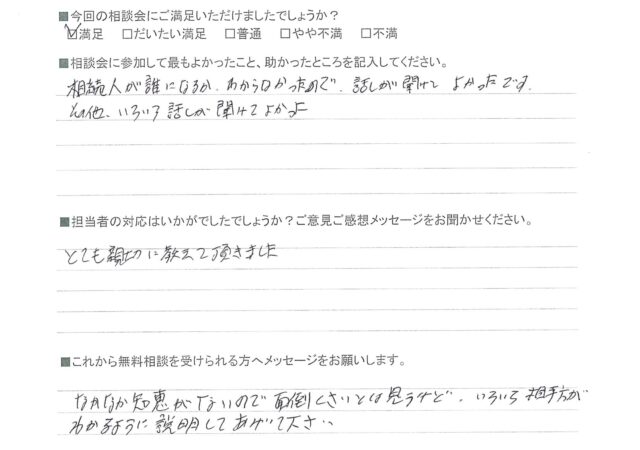 ■今回の相談会にご満足いただけましたでしょうか？
☑満足　□だいたい満足　□普通　□やや不満　□不満
■相談会に参加して最もよかったこと、助かったところを記入してください。
相続人が誰になるか、わからなかったので、話しが聞けて よかったです。
その他、いろいろ話しが聞けてよかった
■担当者の対応はいかがでしたでしょうか？ご意見ご感想メッセージをお聞かせください。
とても親切に教えて頂きました
■これから無料相談を受けられる方へメッセージをお願いします。
なかなか知恵がないので 面倒くさいとは思うけど、いろいろ相手方が
わかるように説明してあげて下さい